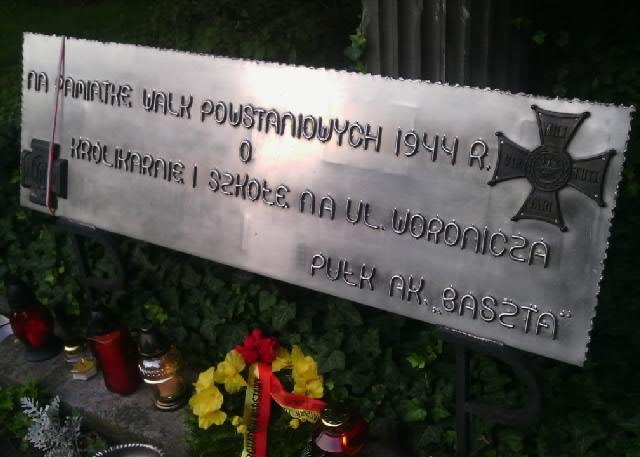 NA PAMIĄTKĘ WALK POWSTANIOWYCH 1944 R.
O
KRÓLIKARNIĘ I SZKOŁĘ NA UL. WORONICZA
PUŁK AK. „BASZTA"